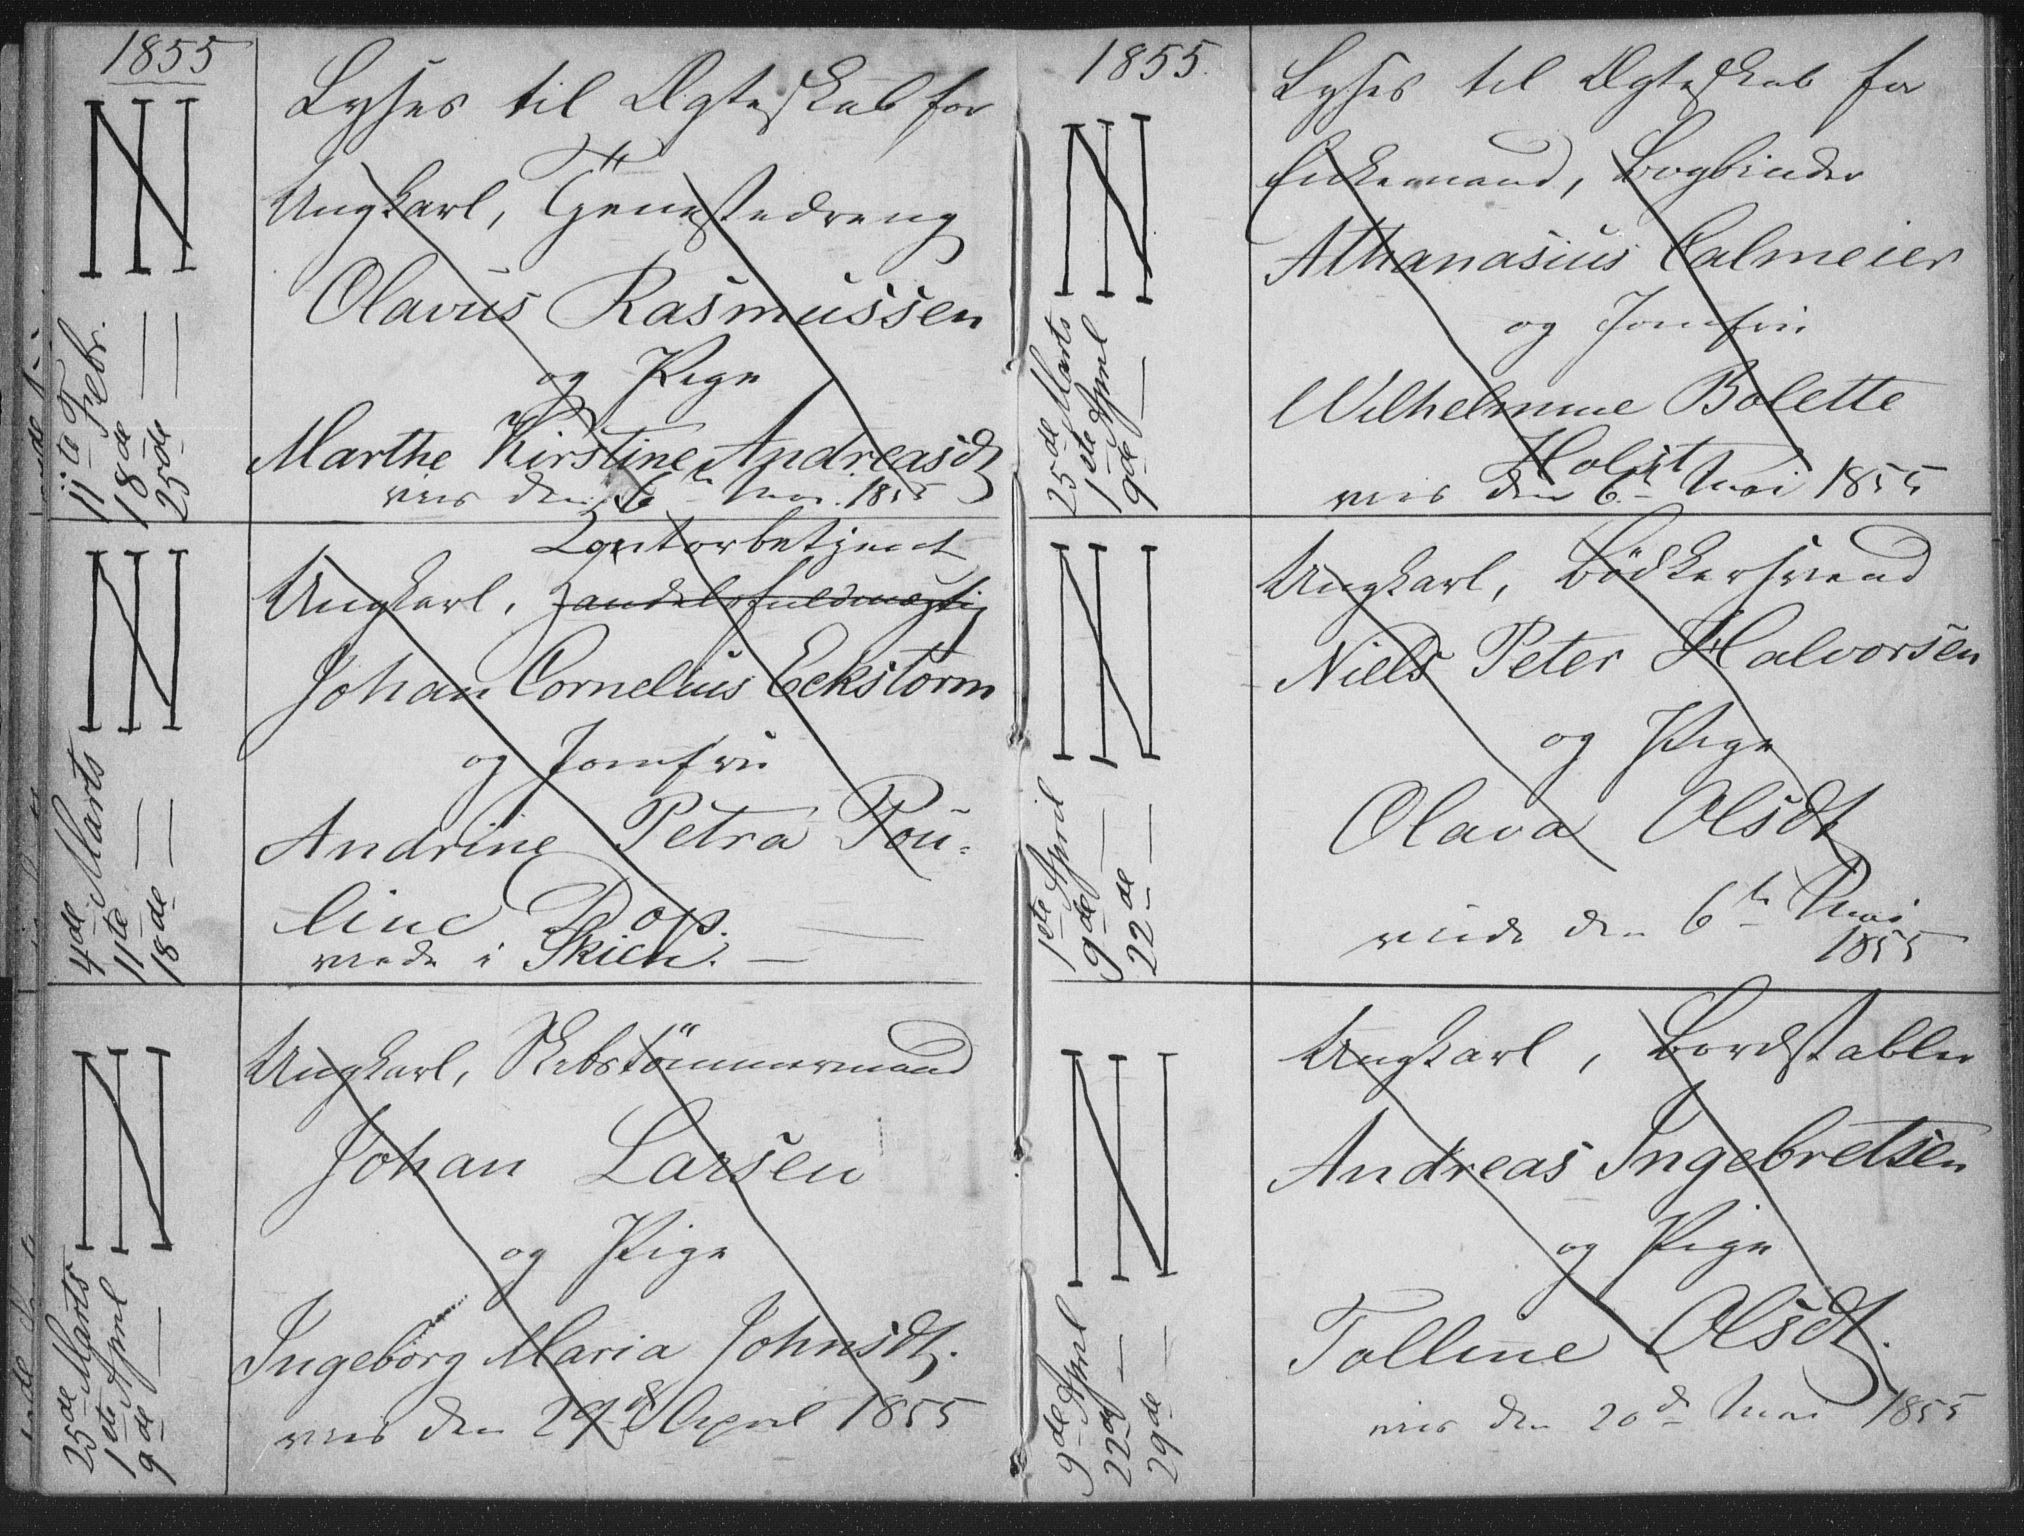 1855
Lyses til Ægteskab for
11te Febr.
18de —
25de —
Ungkarl, Tjenestedreng
Olavus Rasmussen
og Pige
Marthe Kirstine Andreasdt
viet den 6te Mai 1855
4de Marts
11te —
18de —
Contorbetjent
Ungkarl, Handelsfuldmægtig
Johan Cornelius Eckstorm
og Jomfru
Andrine Petra Pou-
line Dops.
viede i Skien. —
25de Marts
1ste April
9de —
Ungkarl, Skibstömmermand
Johan Larsen
og Pige
Ingeborg Maria Johnsdt.
viet den 29de April 1855
1855.
Lyses til Ægteskab for
25de Marts
1ste April
9de —
Enkemand, Bogbinder
Athanasius Calmeier
og Jomfru
Wilhelmine Bolette
Holst
viet den 6te Mai 1855
1ste April
9de —
22de —
Ungkarl, Bödkersvend
Niels Peter Halvorsen
og Pige
Olava Olsdt
viede den 6te Mai
1855
9de April
22de —
29de —
Ungkarl, Bordstabler
Andreas Ingebretsen
og Pige
Tolline Olsdt.
viet den 20de Mai 1855